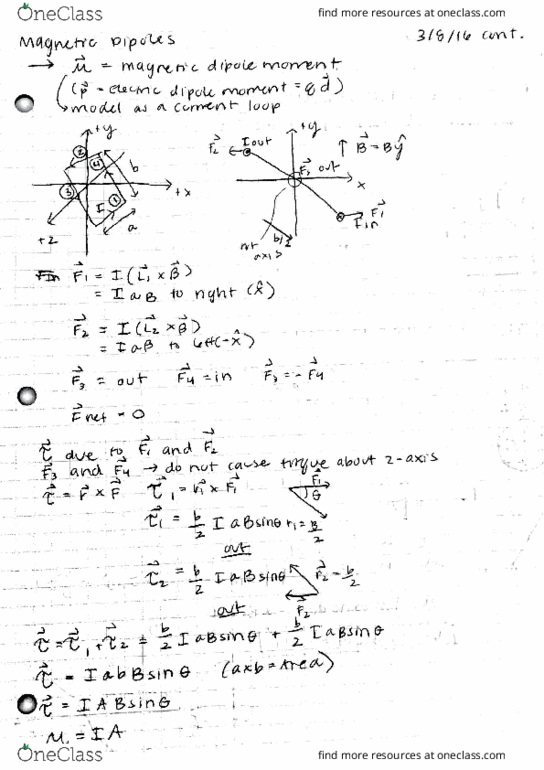 OneClass find more resources at oneclass.com
Magnetic Dipoles 3/8/16 cont.
→ μ⃗ = magnetic dipole moment
(p⃗ - electric dipole moment = qd⃗)
model as a current loop
+y +y
② F⃗₂ I out ↑ B⃗ = Bŷ
④ b F⃗₃ out
③ +x x
I ① F⃗₁
a I in
+z b/2
rot
axis
F⃗₁ = I(L⃗₁ × B⃗)
= I a B to right (x̂)
F⃗₂ = I(L⃗₂ × B⃗)
= I a B to left (-x̂)
F⃗₃ = out F⃗₄ = in F⃗₃ = -F⃗₄
F⃗net = 0
τ⃗ due to F⃗₁ and F⃗₂
F⃗₃ and F⃗₄ → do not cause torque about z-axis
τ⃗ = r⃗ × F⃗ τ⃗₁ = r⃗₁ × F⃗₁ F⃗₁
θ
τ⃗₁ = b/2 I a B sinθ r₁ = B/2
out
τ⃗₂ = b/2 I a B sinθ r⃗₂ = b/2
out F⃗₂
τ⃗ = τ⃗₁ + τ⃗₂ = b/2 I a B sinθ + b/2 I a B sinθ
τ⃗ = I a b B sinθ (a×b = Area)
τ⃗ = I A B sinθ
μ = I A
OneClass find more resources at oneclass.com